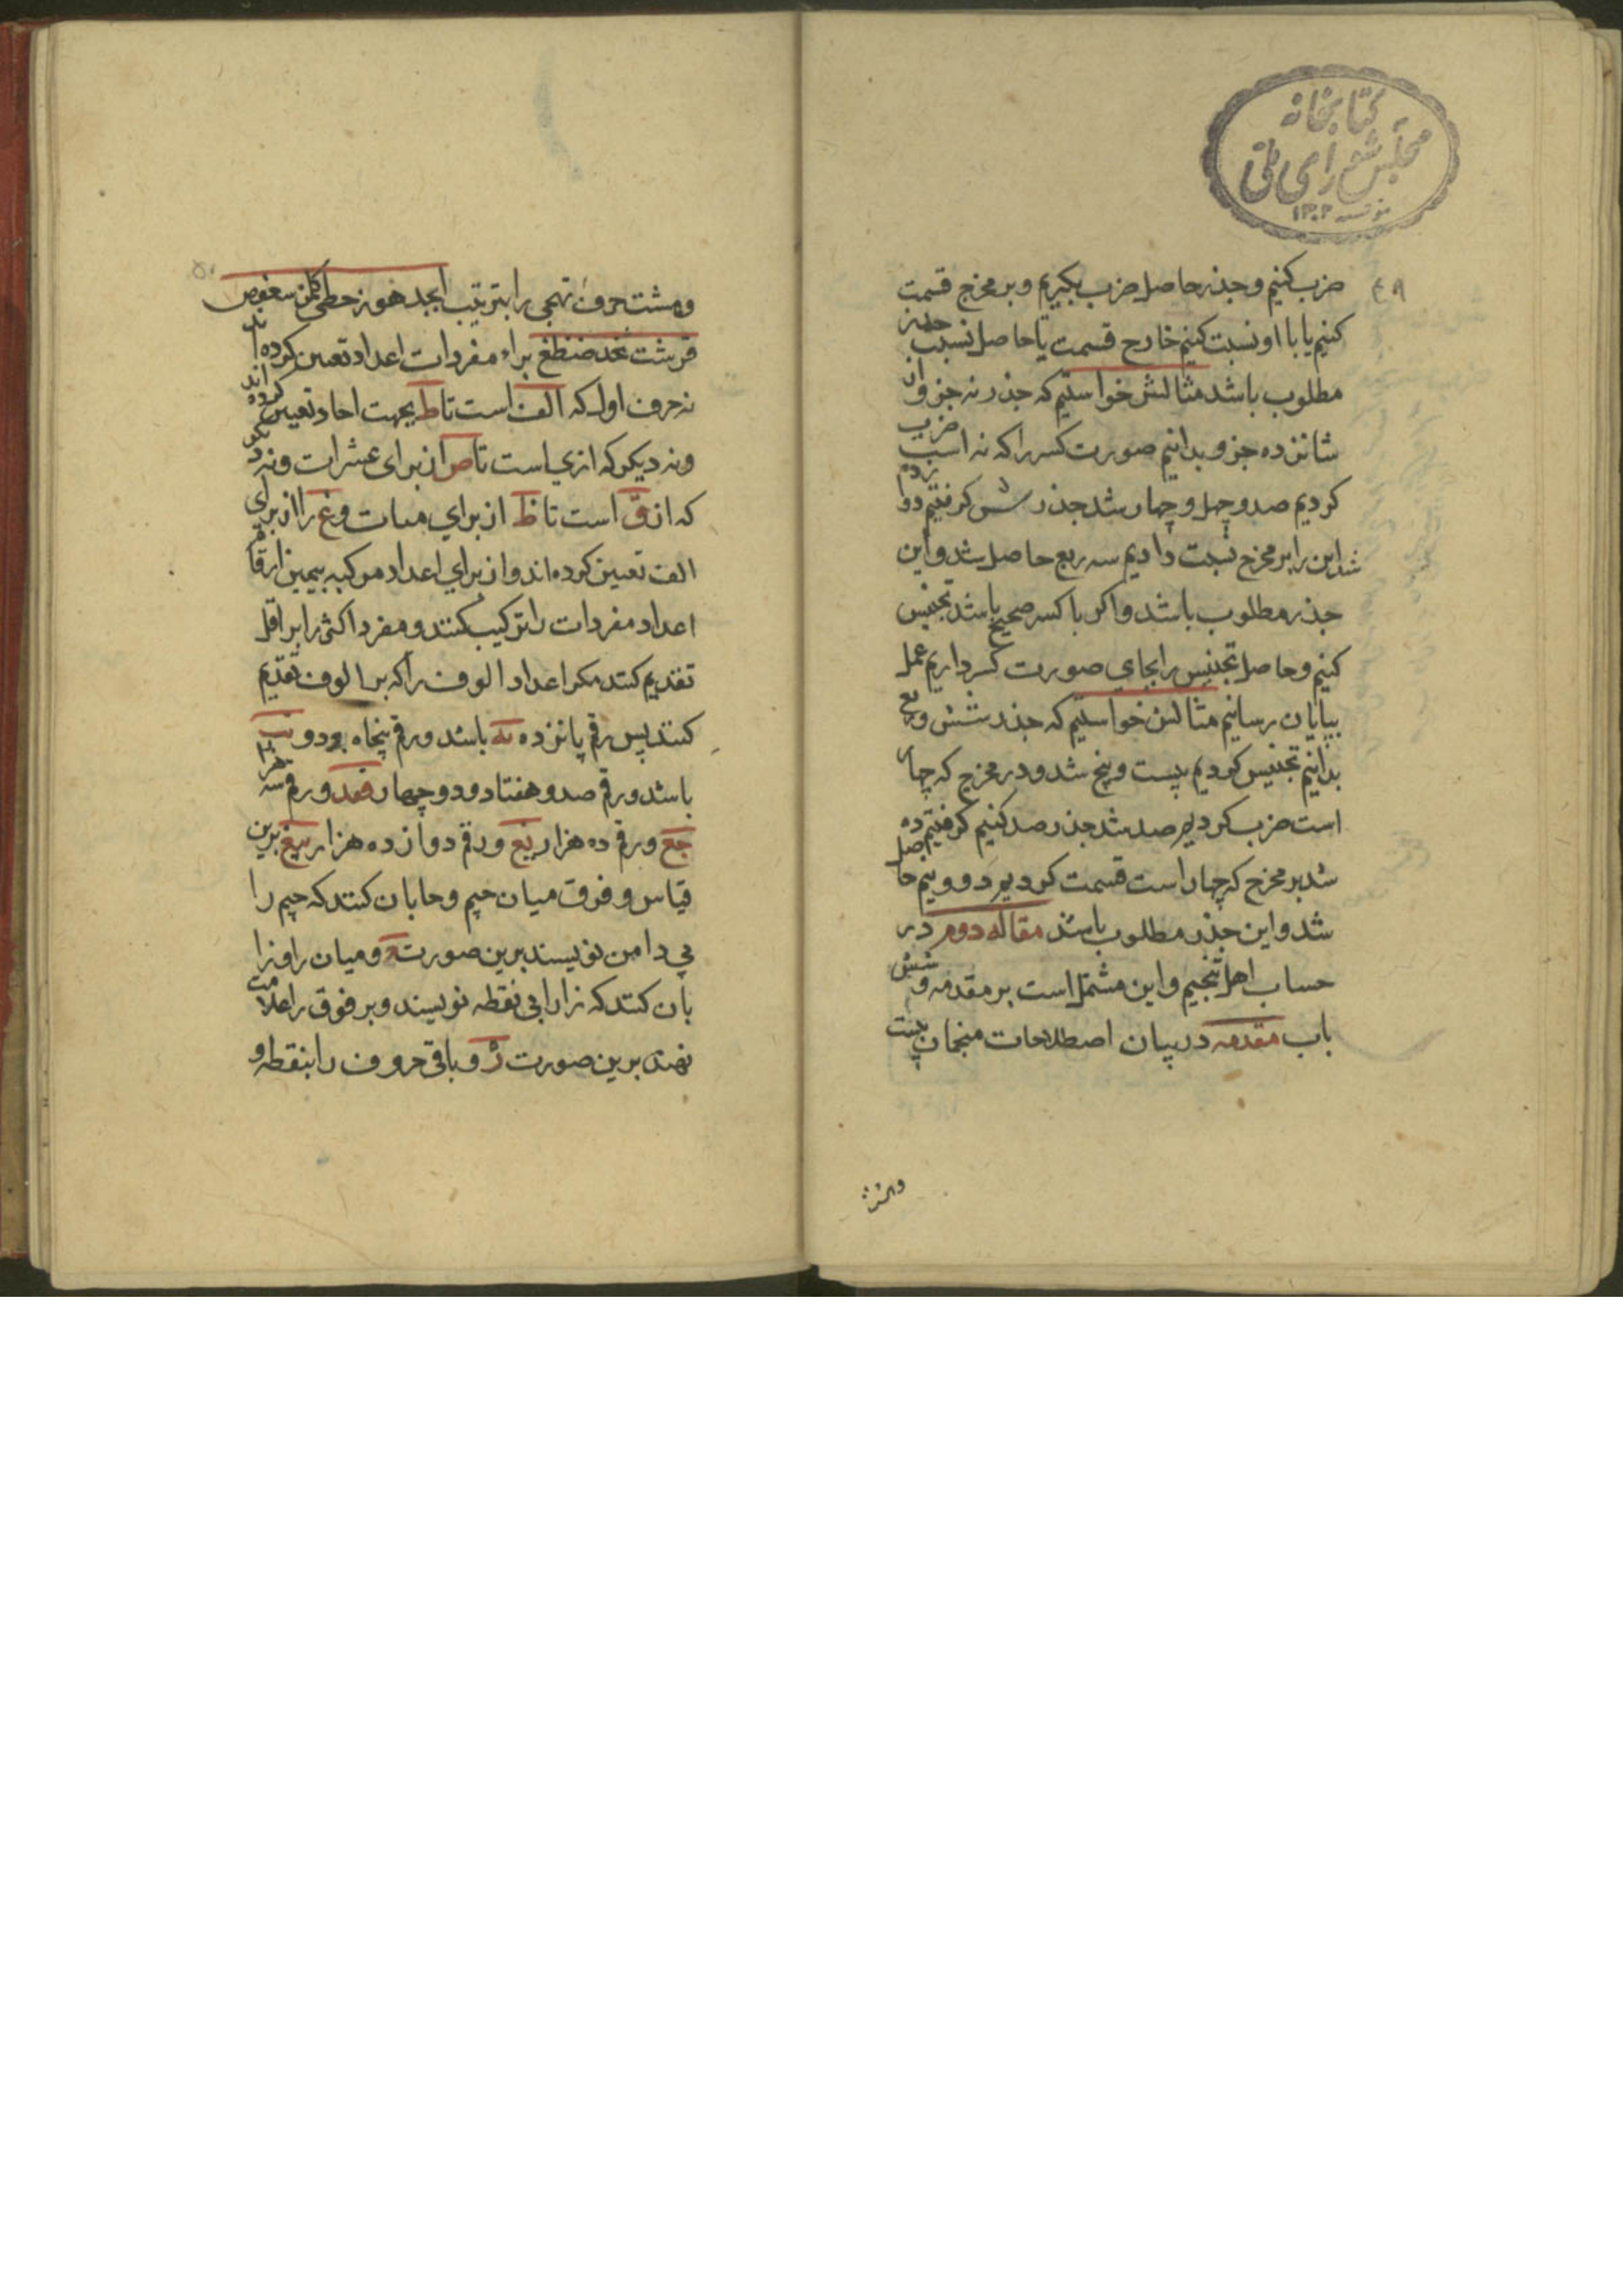 کتابخانه
مجلس شورای ملی
۱۳۰۲
۴۹
ضرب کنیم و جذر حاصل ضرب بکیریم و بر مخرج قسمت
کنیم یا با او نسبت کنیم خارج قسمت یا حاصل نسبت جذر
مطلوب باشد مثالش خواستیم که جذر نه جزو از
شانزده جزو بدانیم صورت کسر را که نه است ضرب
کردیم صد و چهل و چهار شد جذرش کرفتیم دوازده
شد این را بر مخرج نسبت دادیم سه ربع حاصل شد و این
جذر مطلوب باشد و اکر با کسر صحیح باشد تجنیس
کنیم و حاصل تجنیس را بجای صورت کسر داریم عمل
بپایان رسانیم مثالش خواستیم که جذر شش و ربع
بدانیم تجنیس کردیم بیست و پنج شد و در مخرج که چهار
است ضرب کردیم صد شد جذر صد کنیم کرفتیم ده
شد بر مخرج که چهار است قسمت کردیم دو و نیم حاصل
شد و این جذر مطلوب باشد مقاله دوم در
حساب اهل تنجیم و این مشتمل است بر مقدمه و شش
باب مقدمه در بیان اصطلاحات منجمان بیست
۵۰
و هشت حروف تهجی را بترتیب ابجد هوز حطی کلمن سعفص
قرشت ثخذ ضظغ براء مفردات اعداد تعیین کرده اند
نه حرف اول که الف است تا ط بجهت احاد تعیین کرده اند
و نه دیکر که از ی است تا ص از برای عشرات و نه دیکر
که از ق است تا ظ از برای مات و غ را از برای
الف تعیین کرده اند و از برای اعداد مرکبه بیمین ارقام
اعداد مفردات را ترکیب کنند و مفرد اکثر را بر اقل
تقدیم کنند مکر اعداد الوف را که بر الوف تقدیم
کنند پس رقم پانزده یه باشد و رقم پنجاه و دو نب
باشد و رقم صد و هفتاد و چهار قعد و رقم سه هزار
جغ و رقم ده هزار یغ و رقم دوازده هزار یبغ برین
قیاس و فرق میان جیم و حا بان کنند که جیم را
بی دامن نویسند برین صورت و میان را و زا
بان کنند که زا را بی نقطه نویسند و بر فوق را علامت
نهند برین صورت و باقی حروف را بنقطه و